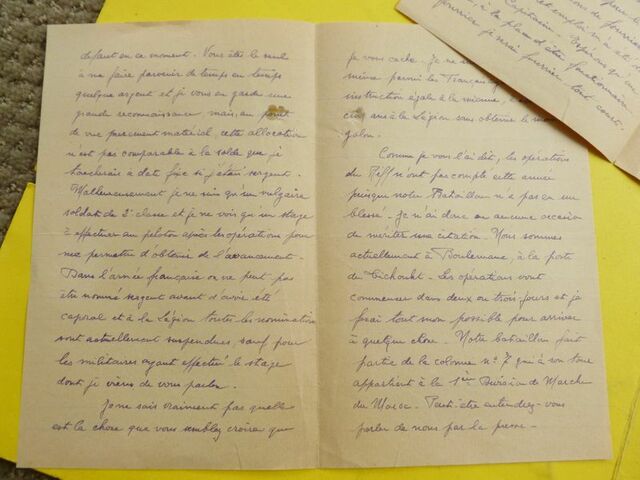 défaut en ce moment. Vous êtes le seul
à me faire parvenir de temps en temps
quelque argent et je vous en garde une
grande reconnaissance mais, au point
de vue purement matériel, cette allocation
n'est pas comparable à la solde que je
toucherais à date fixe si j'étais sergent.
Malheureusement je ne suis qu'un vulgaire
soldat de 2e classe et je ne vois qu'un stage
à effectuer au peloton après les opérations pour
me permettre d'obtenir de l'avancement.
Dans l'armée française on ne peut pas
être nommé sergent avant d'avoir été
caporal et à la Légion toutes les nominations
sont actuellement suspendues, sauf pour
les militaires ayant effectué le stage
dont je viens de vous parler.
Je ne sais vraiment pas quelle
est la chose que vous semblez croire que
je vous cache. Je ne
même parmi les Français
instruction égale à la mienne,
cinq ans à la Légion sans obtenir le
galon.
Comme je vous l'ai dit, les opérations
du Riff n'ont pas compté cette année
puisque notre Bataillon n'a pas eu un
blessé. Je n'ai donc eu aucune occasion
de mériter une citation. Nous sommes
actuellement à Boulemane, à la porte
du Tichoukt. Les opérations vont
commencer dans deux ou trois jours et je
ferai tout mon possible pour arriver
à quelque chose. Notre bataillon fait
partie de la colonne n° 7 qui à son tour
appartient à la 1ère Division de Marche
du Maroc. Peut-être entendrez-vous
parler de nous par la presse.
de fourrier
Capitaine.
à la place d'être fonctionnaire
fourrier je serai fourrier tout court.